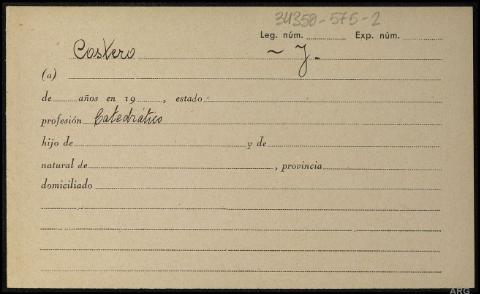 34350-575-2
Leg. núm. Exp. núm.
Costero ~ J.
(a)
de años en 19 , estado
profesión Catedrático
hijo de y de
natural de , provincia
domiciliado
ARG